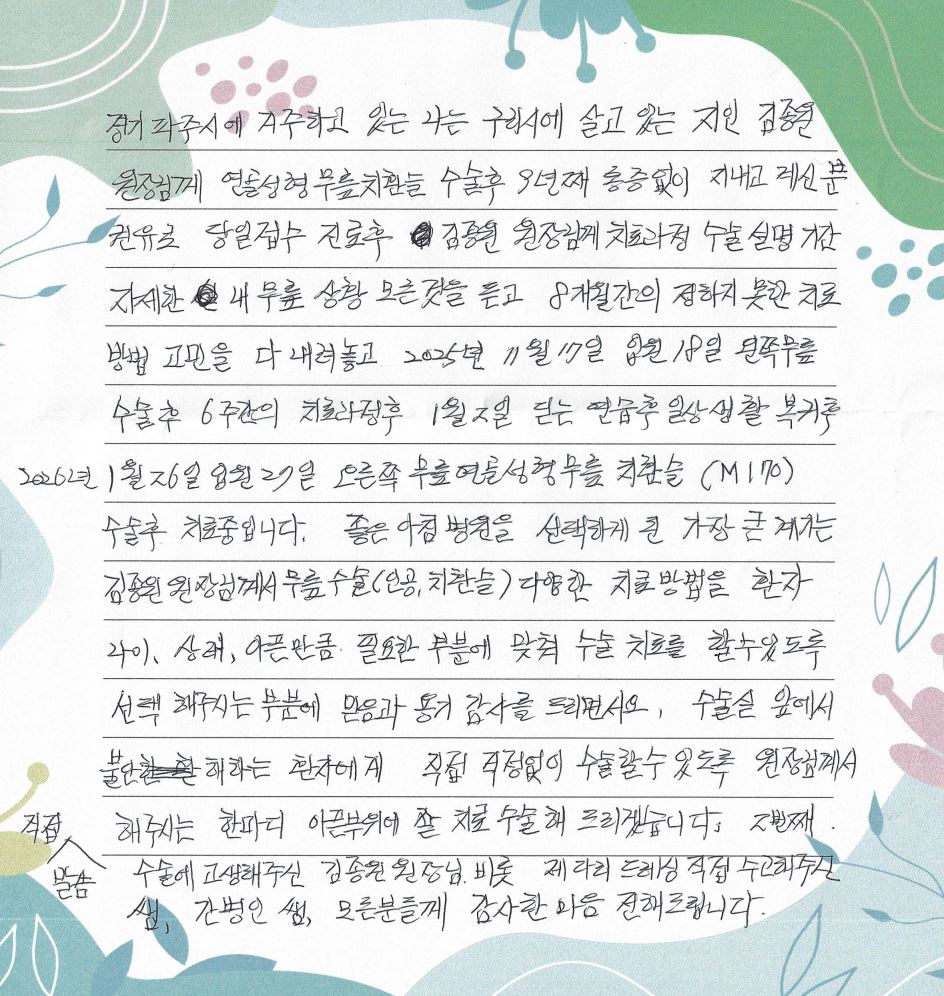 경기 파주시에 거주하고 있는 나는 구리시에 살고 있는 지인 김종원
원장님께 연골성형 무릎치환술 수술후 9년째 통증없이 지내고 계신 분
권유로 당일접수 진료후 김종원 원장님께 치료과정 수술 설명 기간
자세한 내 무릎 상황 모든것을 듣고 8개월간의 정하지 못한 치료
방법 고민을 다 내려놓고 2025년 11월 17일 입원 18일 왼쪽무릎
수술후 6주간의 치료과정후 1월 2일 딛는 연습후 일상생활 복귀후
2026년 1월 26일 입원 27일 오른쪽 무릎연골성형무릎 치환술 (M170)
수술후 치료중입니다. 좋은아침 병원을 선택하게 된 가장 큰 계기는
김종원 원장님께서 무릎수술(인공,치환술) 다양한 치료방법을 환자
나이, 상태, 아픈만큼 필요한 부분에 맞춰 수술 치료를 할수있도록
선택 해주시는 부분에 믿음과 용기 감사를 드리면서요, 수술실 앞에서
불안 해하는 환자에게 직접 걱정없이 수술할수 있도록 원장님께서
직접 말씀 해주시는 한마디 아픈부위에 잘 치료 수술해 드리겠습니다. 2번째.
수술에 고생해주신 김종원 원장님. 비롯 제 다리 드레싱 직접 수고해주신
쌤, 간병인 쌤, 모든분들께 감사한 마음 전해드립니다.